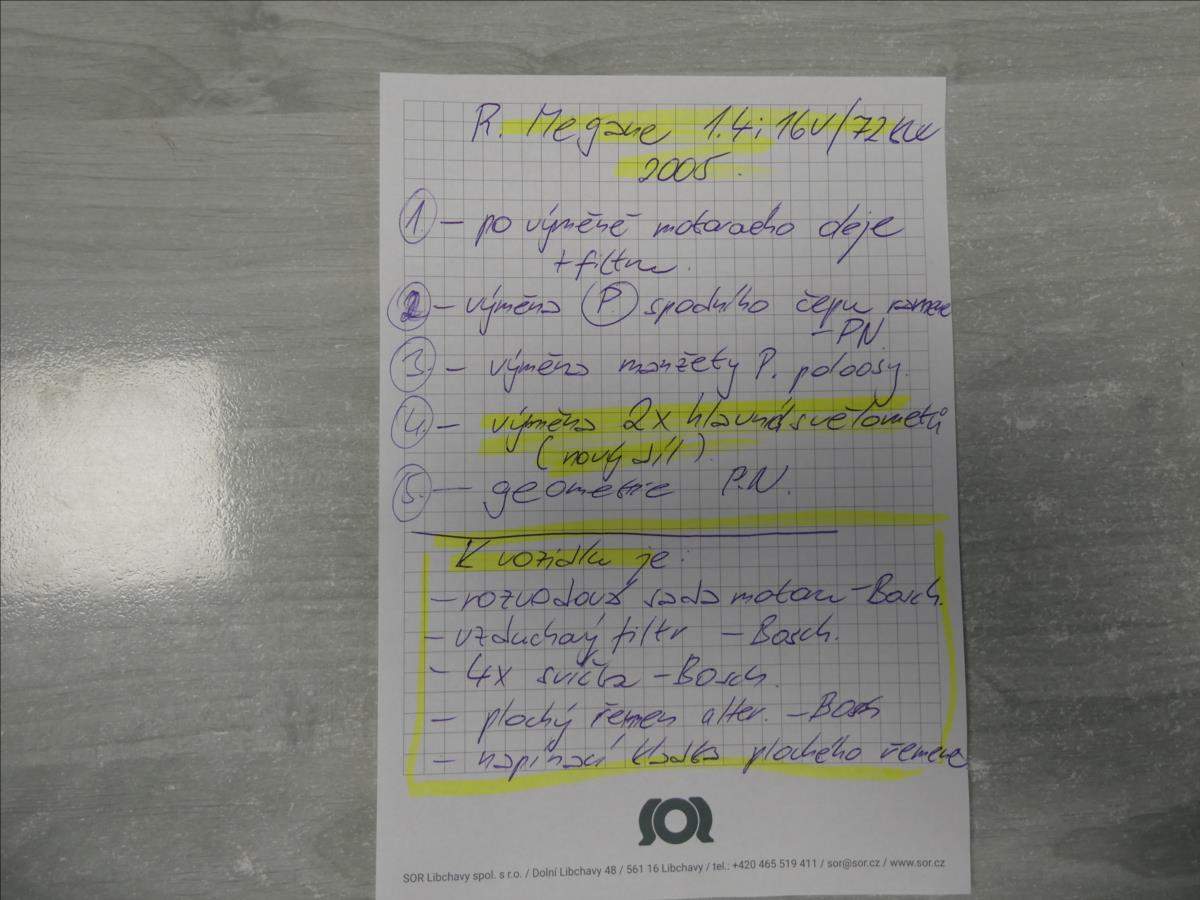 R. Megane 1.4i 16V/72kw
2005.
1. – po výměně motorového oleje
+ filtru.
2 – výměna P. spodního čepu ramene
– PN
3. – výměna manžety P. poloosy.
4. – výměna 2x hlavních světlometů
(nový díl).
5. – geometrie P.N.
K vozidlu je:
– rozvodová sada motoru – Bosch.
– vzduchový filtr – Bosch.
– 4x svíčka – Bosch.
– plochý řemen alter. – Bosch
– napínací kladka plochého řemene
SOR
SOR Libchavy spol. s r.o. / Dolní Libchavy 48 / 561 16 Libchavy / tel.: +420 465 519 411 / sor@sor.cz / www.sor.cz